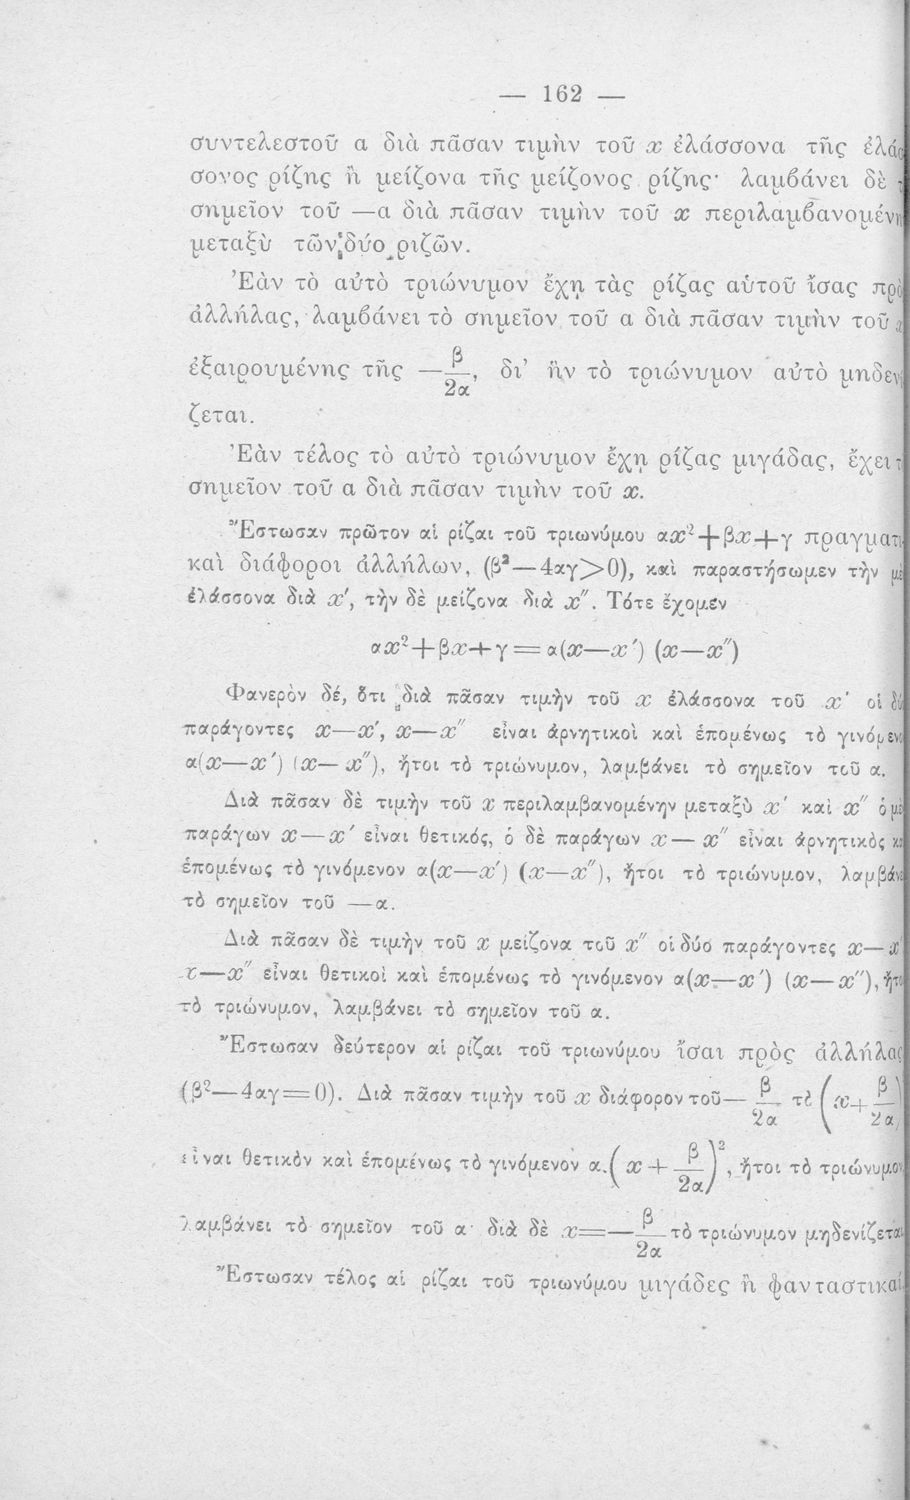 — 162 —
συντελεστοῦ α διὰ πᾶσαν τιμὴν τοῦ x ἐλάσσονα τῆς ἐλάσ
σονος ρίζης ἢ μείζονα τῆς μείζονος ρίζης· λαμβάνει δὲ τ
σημεῖον τοῦ —α διὰ πᾶσαν τιμὴν τοῦ x περιλαμβανομένη
μεταξὺ τῶν δύο ριζῶν.
Ἐὰν τὸ αὐτὸ τριώνυμον ἔχῃ τὰς ρίζας αὑτοῦ ἴσας πρὸ
ἀλλήλας, λαμβάνει τὸ σημεῖον τοῦ α διὰ πᾶσαν τιμὴν τοῦ x
ἐξαιρουμένης τῆς —β/2α, δι’ ἣν τὸ τριώνυμον αὐτὸ μηδενί
ζεται.
Ἐὰν τέλος τὸ αὐτὸ τριώνυμον ἔχῃ ρίζας μιγάδας, ἔχει τ
σημεῖον τοῦ α διὰ πᾶσαν τιμὴν τοῦ x.
Ἔστωσαν πρῶτον αἱ ρίζαι τοῦ τριωνύμου αx²+βx+γ πραγματι
καὶ διάφοροι ἀλλήλων, (β²—4αγ>0), καὶ παραστήσωμεν τὴν μὲ
ἐλάσσονα διὰ x′, τὴν δὲ μείζονα διὰ x″. Τότε ἔχομεν
αx²+βx+γ=α(x—x′) (x—x″)
Φανερὸν δέ, ὅτι διὰ πᾶσαν τιμὴν τοῦ x ἐλάσσονα τοῦ x′ οἱ δύ
παράγοντες x—x′, x—x″ εἶναι ἀρνητικοὶ καὶ ἑπομένως τὸ γινόμενο
α(x—x′) (x—x″), ἤτοι τὸ τριώνυμον, λαμβάνει τὸ σημεῖον τοῦ α.
Διὰ πᾶσαν δὲ τιμὴν τοῦ x περιλαμβανομένην μεταξὺ x′ καὶ x″ ὁ μὲ
παράγων x—x′ εἶναι θετικός, ὁ δὲ παράγων x— x″ εἶναι ἀρνητικὸς κα
ἑπομένως τὸ γινόμενον α(x—x′) (x—x″), ἤτοι τὸ τριώνυμον, λαμβάνε
τὸ σημεῖον τοῦ —α.
Διὰ πᾶσαν δὲ τιμὴν τοῦ x μείζονα τοῦ x″ οἱ δύο παράγοντες x—x′
x—x″ εἶναι θετικοὶ καὶ ἑπομένως τὸ γινόμενον α(x—x′) (x—x″), ἤτο
τὸ τριώνυμον, λαμβάνει τὸ σημεῖον τοῦ α.
Ἔστωσαν δεύτερον αἱ ρίζαι τοῦ τριωνύμου ἴσαι πρὸς ἀλλήλας
(β²—4αγ=0). Διὰ πᾶσαν τιμὴν τοῦ x διάφορον τοῦ—β/2α τὸ (x+β/2α)
εἶναι θετικὸν καὶ ἑπομένως τὸ γινόμενον α.(x+β/2α)², ἤτοι τὸ τριώνυμον
λαμβάνει τὸ σημεῖον τοῦ α· διὰ δὲ x=—β/2α τὸ τριώνυμον μηδενίζεται
Ἔστωσαν τέλος αἱ ρίζαι τοῦ τριωνύμου μιγάδες ἢ φανταστικαί